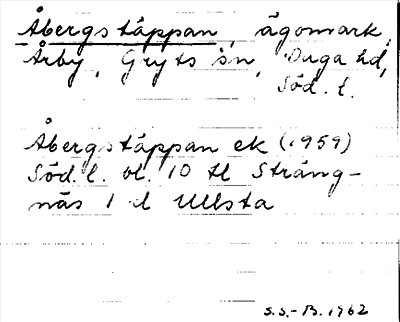 Åbergstäppan, ägomark,
Årby, Gryts sn, Daga hd,
Söd. l.
Åbergstäppan ek (1959)
Söd. l. bl. 10 tl Sträng-
näs 1 d Ullsta
S.S.-B. 1962